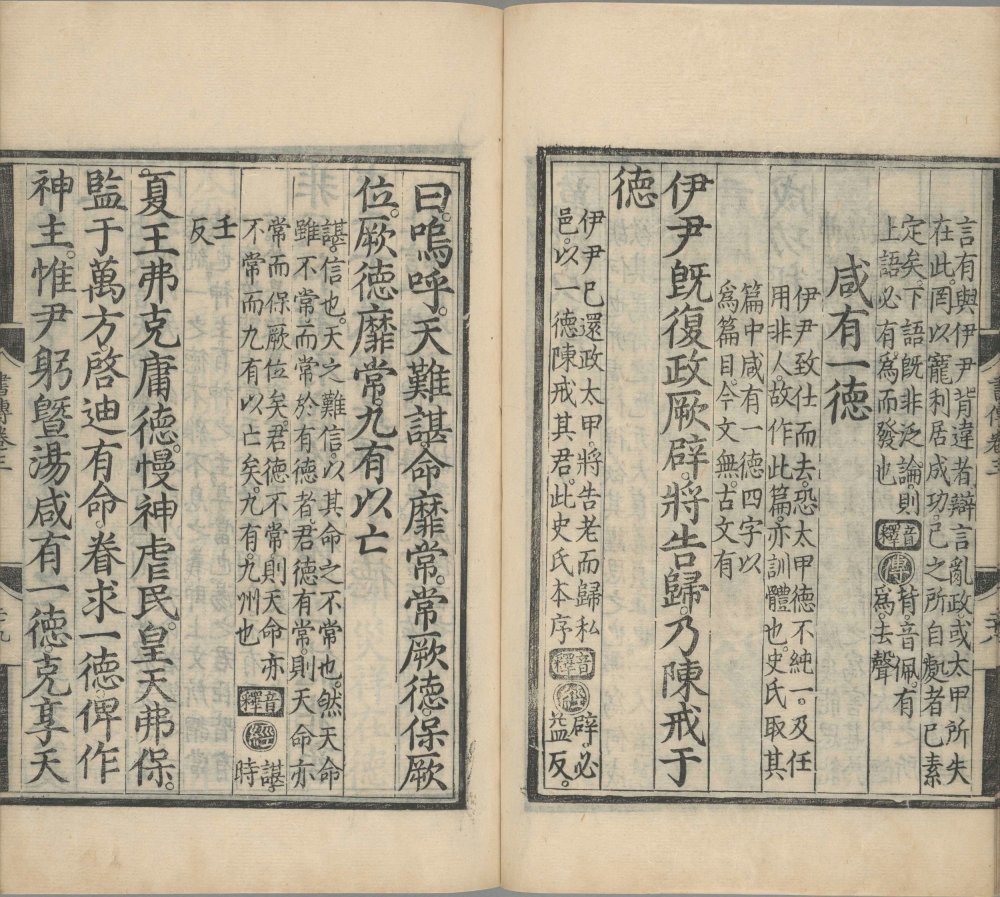 言有與伊尹背違者辯言亂政或太甲所失
在此罔以寵利居成功己之所自處者已素
定矣下語旣非泛論則音釋傳背音佩有
上語必有爲而發也爲去聲
咸有一德
伊尹致仕而去恐太甲德不純一及任
用非人故作此篇亦訓體也史氏取其
篇中咸有一德四字以
爲篇目今文無古文有
伊尹旣復政厥辟將告歸乃陳戒于
德
伊尹已還政太甲將告老而歸私音釋經辟必
邑以一德陳戒其君此史氏本序益反
曰嗚呼天難諶命靡常常厥德保厥
位厥德靡常九有以亡
諶信也天之難信以其命之不常也然天命
雖不常而常於有德者君德有常則天命亦
常而保厥位矣君德不常則天命亦音釋經諶時
不常而九有以亡矣九有九州也
壬
反
夏王弗克庸德慢神虐民皇天弗保
監于萬方啓迪有命眷求一德俾作
神主惟尹躬曁湯咸有一德克享天
書傳卷三